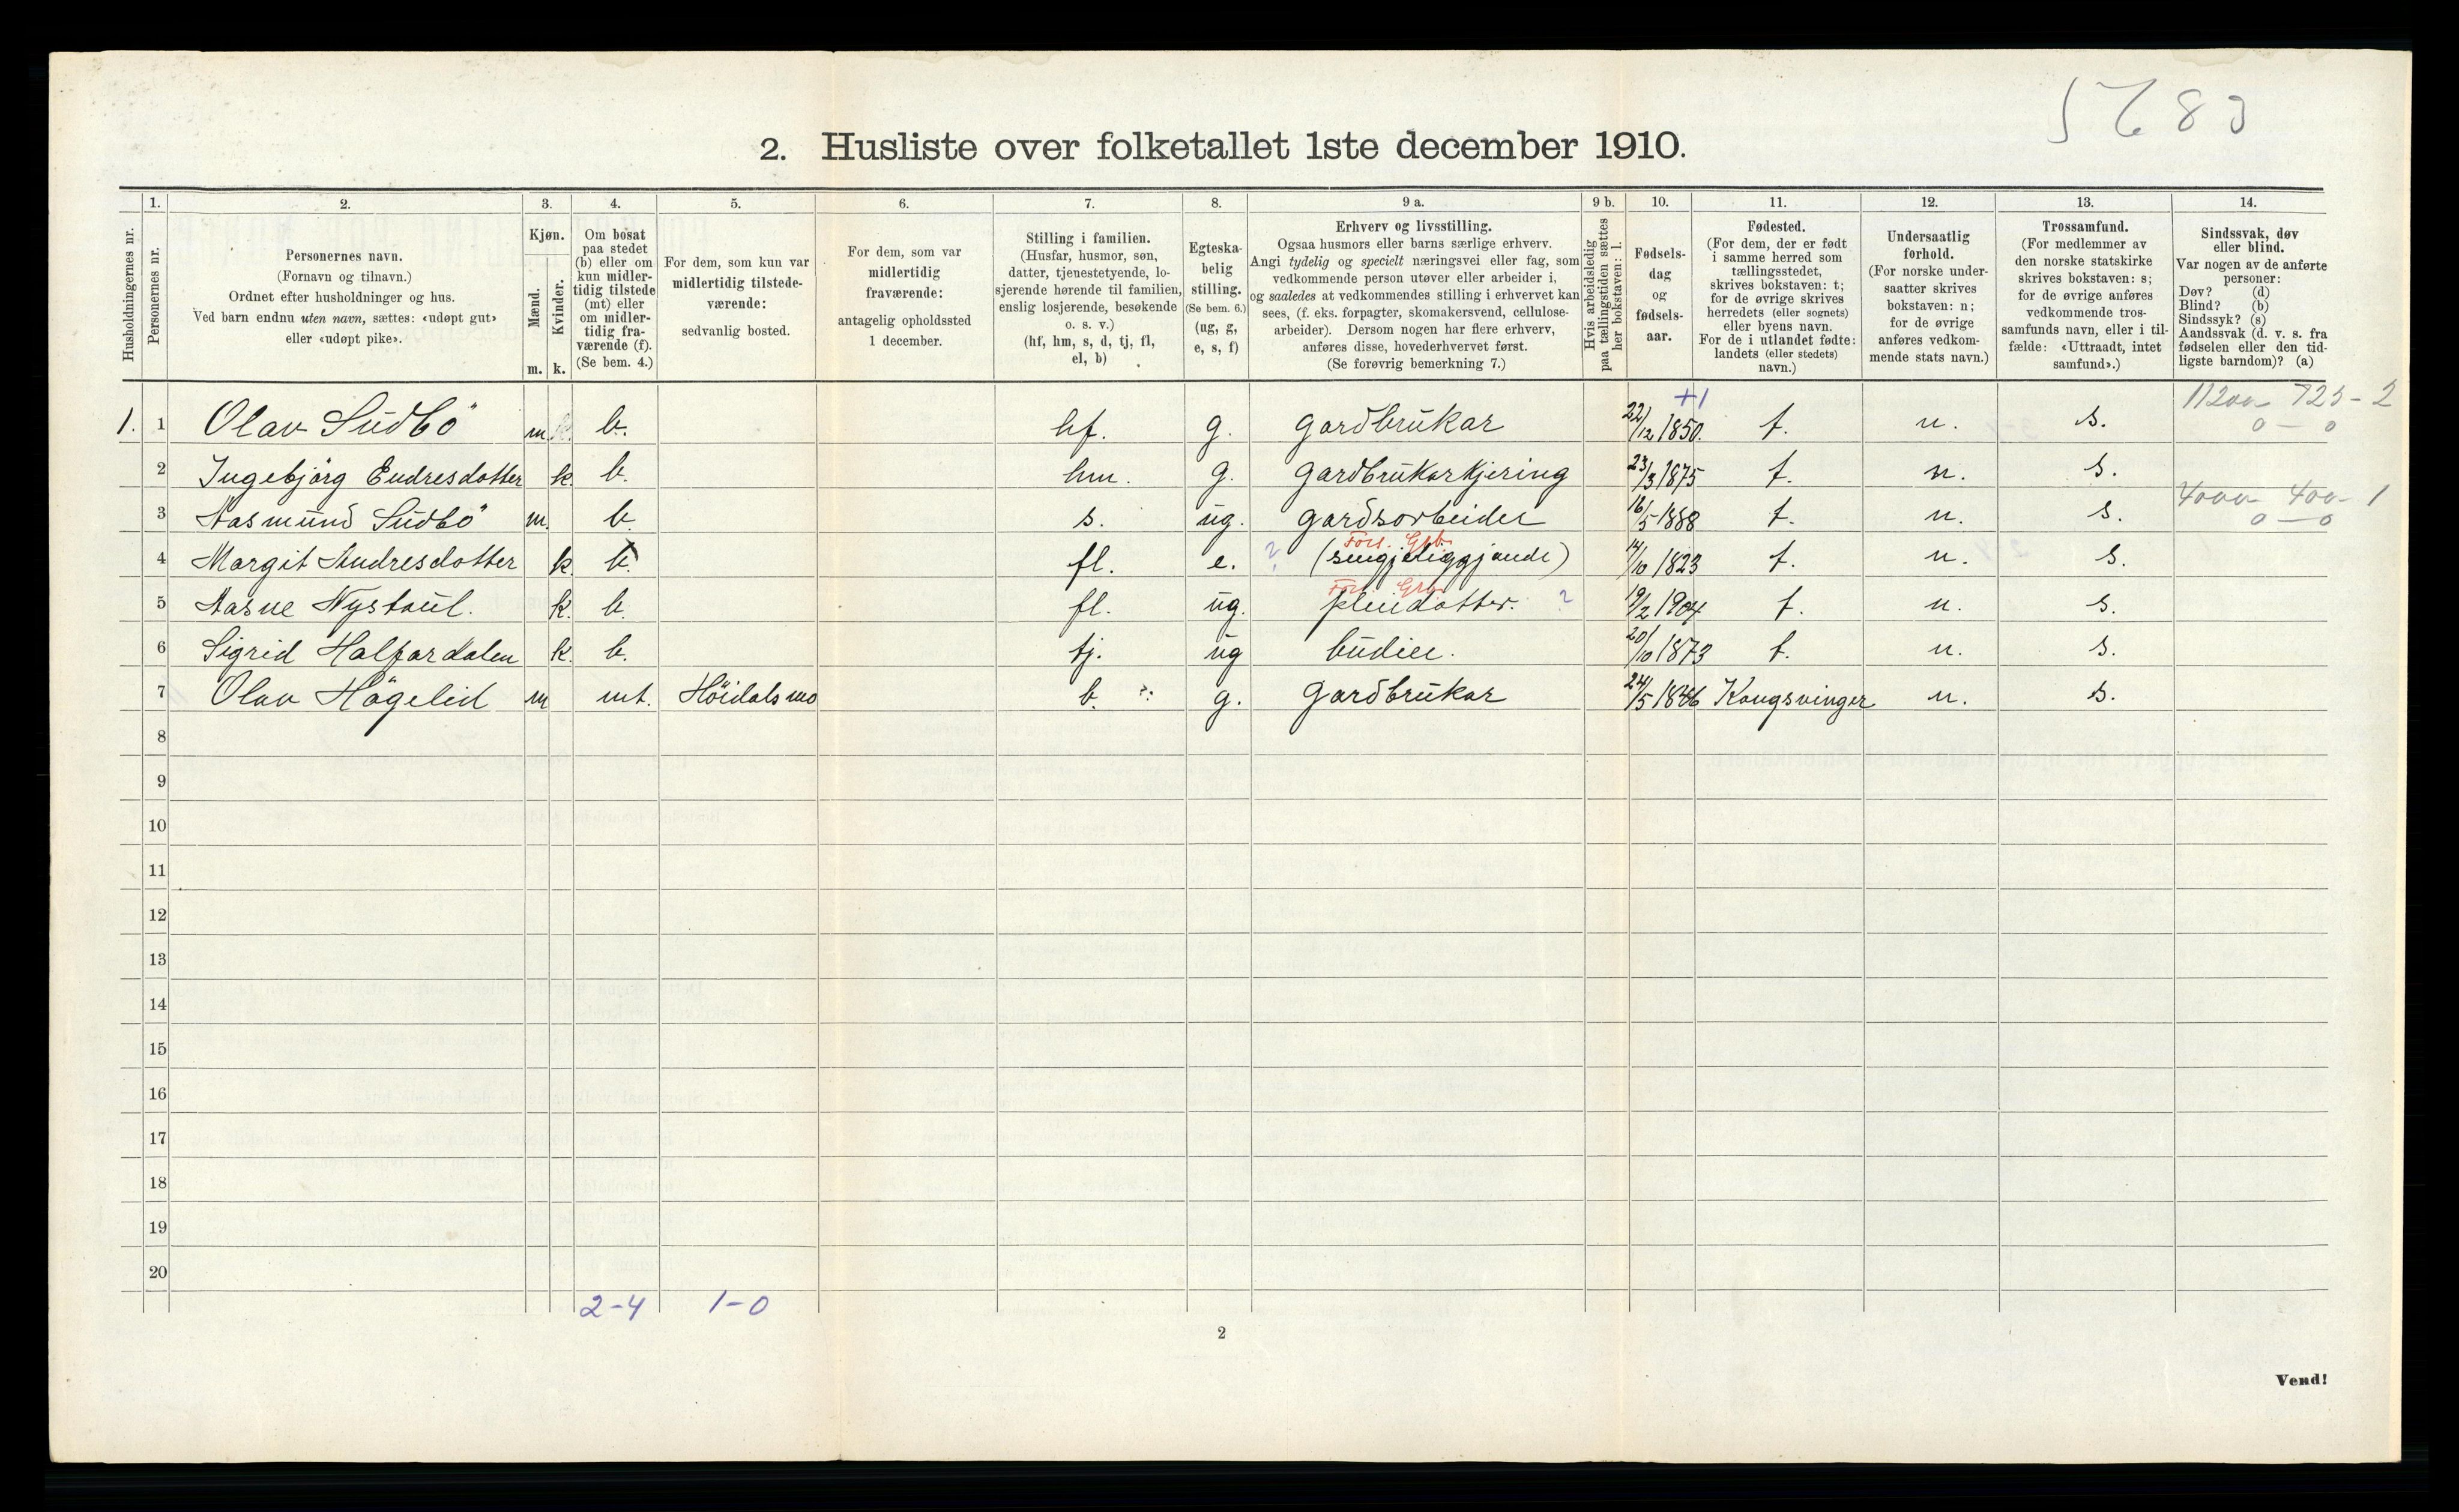 5683
2. Husliste over folketallet 1ste december 1910.
Husholdningernes nr.
1.
Personernes nr.
2.
Personernes navn.
(Fornavn og tilnavn.)
Ordnet efter husholdninger og hus.
Ved barn endnu uten navn, sættes: «udøpt gut»
eller «udøpt pike».
3.
Kjøn.
Mænd.
Kvinder.
m. k.
4.
Om bosat
paa stedet
(b) eller om
kun midler-
tidig tilstede
(mt) eller
om midler-
tidig fra-
værende (f).
(Se bem. 4.)
5.
For dem, som kun var
midlertidig tilstede-
værende:
sedvanlig bosted.
6.
For dem, som var
midlertidig
fraværende:
antagelig opholdssted
1 december.
7.
Stilling i familien.
(Husfar, husmor, søn,
datter, tjenestetyende, lo-
sjerende hørende til familien,
enslig losjerende, besøkende
o. s. v.)
(hf, hm, s, d, tj, fl,
el, b)
8.
Egteska-
belig
stilling.
(Se bem. 6.)
(ug, g,
e, s, f)
9 a.
Erhverv og livsstilling.
Ogsaa husmors eller barns særlige erhverv.
Angi tydelig og specielt næringsvei eller fag, som
vedkommende person utøver eller arbeider i,
og saaledes at vedkommendes stilling i erhvervet kan
sees, (f. eks. forpagter, skomakersvend, cellulose-
arbeider). Dersom nogen har flere erhverv,
anføres disse, hovederhvervet først.
(Se forøvrig bemerkning 7.)
9 b.
Hvis arbeidsledig
paa tællingstiden sættes
her bokstaven: l.
10.
Fødsels-
dag
og
fødsels-
aar.
11.
Fødested.
(For dem, der er født
i samme herred som
tællingsstedet,
skrives bokstaven: t;
for de øvrige skrives
herredets (eller sognets)
eller byens navn.
For de i utlandet fødte:
landets (eller stedets)
navn.)
12.
Undersaatlig
forhold.
(For norske under-
saatter skrives
bokstaven: n;
for de øvrige
anføres vedkom-
mende stats navn.)
13.
Trossamfund.
(For medlemmer av
den norske statskirke
skrives bokstaven: s;
for de øvrige anføres
vedkommende tros-
samfunds navn, eller i til-
fælde: «Uttraadt, intet
samfund».)
14.
Sindssvak, døv
eller blind.
Var nogen av de anførte
personer:
Døv? (d)
Blind? (b)
Sindssyk? (s)
Aandssvak (d. v. s. fra
fødselen eller den tid-
ligste barndom)? (a)
+1
1. 1 Olav Sudbö m. b. hf. g. gardbrukar 22/12 1850. t. n. s. 11200 725 - 2
0 — 0
2 Ingebjörg Eudresdotter k. b. hm. g. gardbrukarkjering 23/3 1875 t. n. s.
3 Aasmund Sudbö m. b. s. ug. gardsorbeider 16/5 1888 t. n. s. 4000 400 - 1
0 — 0
Fors. Gbr.
4 Margit Andresdotter k. b. fl. e. ? (sengjeliggjande) 14/10 1823 t. n. s.
Fors. Grbr.
5 Aasne Nystaul. k. b. fl. ug. pleiedotter. ? 19/2 1904 t. n. s.
6 Sigrid Halfardalen k. b. tj. ug budiee. 20/10 1873 t. n. s.
7 Olav Högelid m mt. Höidalsmo b. g. gardbrukar 24/5 1846 Kongsvinger n. s.
8
9
10
11
12
13
14
15
16
17
18
19
20
2-4 1-0
2
Vend!